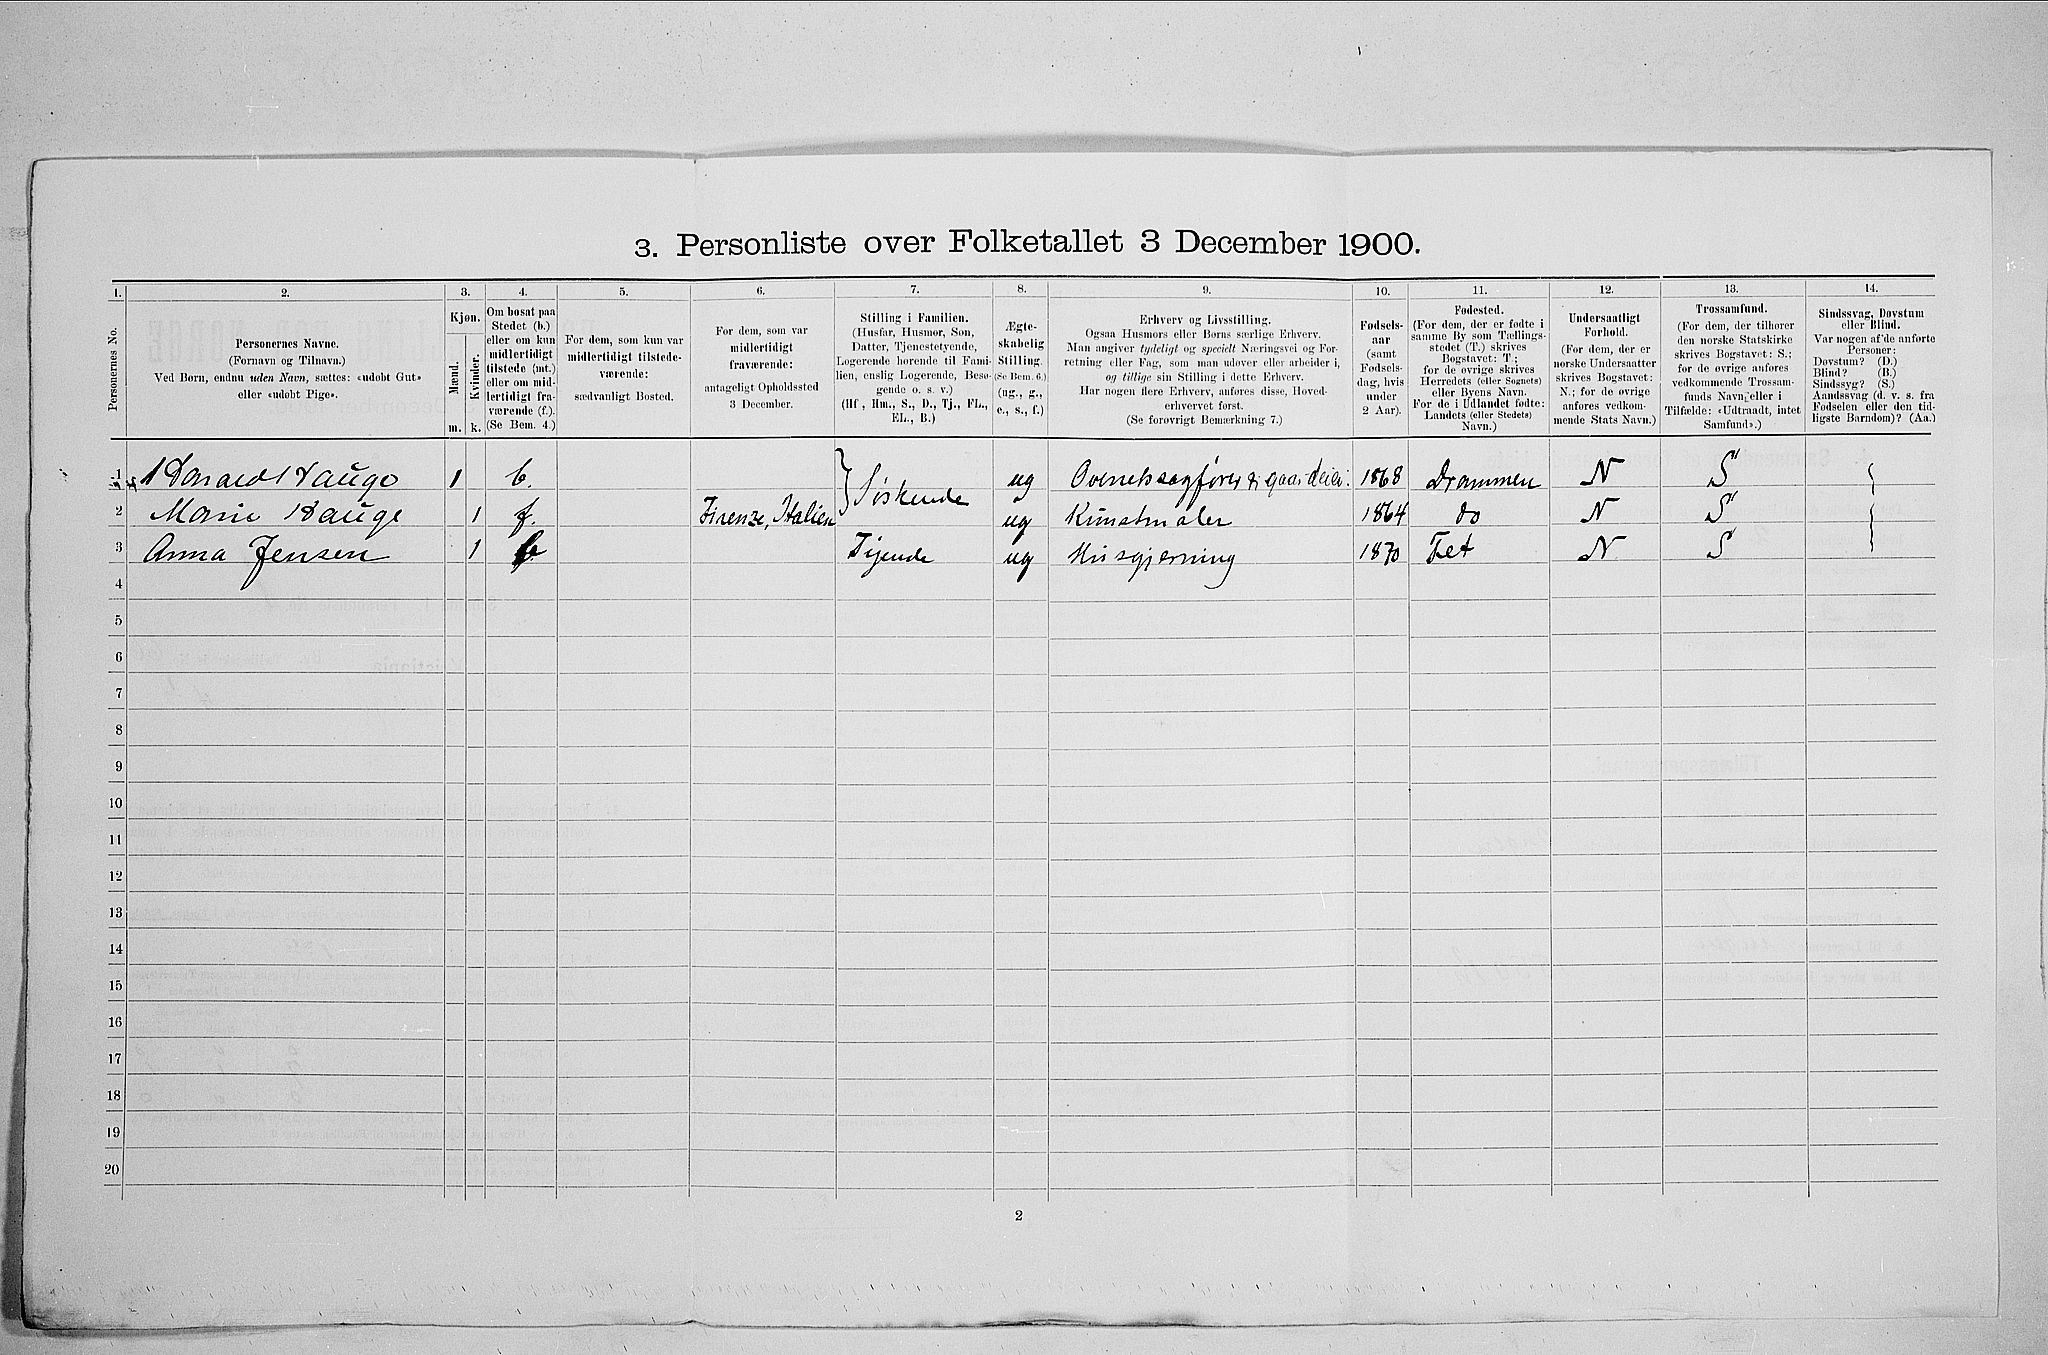 3. Personliste over Folketallet 3 December 1900.
1. 2. 3. 4. 5. 6. 7. 8. 9. 10. 11. 12. 13. 14.
Personernes No.
Personernes Navne.
(Fornavn og Tilnavn.)
Ved Børn, endnu uden Navn, sættes: «udøbt Gut»
eller «udøbt Pige».
Kjøn.
Mænd.
Kvinder.
m. k.
Om bosat paa
Stedet (b.)
eller om kun
midlertidigt
tilstede (mt.)
eller om mid-
lertidigt fra-
værende (f.).
(Se Bem. 4.)
For dem, som kun var
midlertidigt tilstede-
værende:
sædvanligt Bosted.
For dem, som var
midlertidigt
fraværende:
antageligt Opholdssted
3 December.
Stilling i Familien.
(Husfar, Husmor, Søn,
Datter, Tjenestetyende,
Logerende hørende til Fami-
lien, enslig Logerende, Besø-
gende o. s. v.)
(Hf, Hm., S., D., Tj., FL.,
EL., B.)
Ægte-
skabelig
Stilling.
(Se Bem. 6.)
(ug., g.,
e., s., f.)
Erhverv og Livsstilling.
Ogsaa Husmors eller Børns særlige Erhverv.
Man angiver tydeligt og specielt Næringsvei og For-
retning eller Fag, som man udøver eller arbeider i,
og tillige sin Stilling i dette Erhverv.
Har nogen flere Erhverv, anføres disse, Hoved-
erhvervet først.
(Se forøvrigt Bemærkning 7.)
Fødsels-
aar
(samt
Fødsels-
dag, hvis
under
2 Aar).
Fødested.
(For dem, der er fødte i
samme By som Tællings-
stedet (T.) skrives
Bogstavet: T.;
for de øvrige skrives
Herredets (eller Sognets)
eller Byens Navn.
For de i Udlandet fødte:
Landets (eller Stedets)
Navn.)
Undersaatligt
Forhold.
(For dem, der er
norske Undersaatter
skrives Bogstavet:
N.; for de øvrige
anføres vedkom-
mende Stats Navn.)
Trossamfund.
(For dem, der tilhører
den norske Statskirke
skrives Bogstavet: S.;
for de øvrige anføres
vedkommende Trossam-
funds Navn, eller i
Tilfælde: «Udtraadt, intet
Samfund».)
Sindssvag, Døvstum
eller Blind.
Var nogen af de anførte
Personer:
Døvstum? (D.)
Blind? (B.)
Sindssyg? (S.)
Aandssvag (d. v. s. fra
Fødselen eller den tid-
ligste Barndom)? (Aa.)
1 Hauge 1 b. } Søskende ug 1868 Drammen N S
2 Marie Hauge 1 f. Firenze, Italien ug Kunstmaler 1864 do N S
3 Anna Jensen 1 b Tjende ug Husgjerning 1870 Fet N S
4
5
6
7
8
9
10
11
12
13
14
15
16
17
18
19
20
2